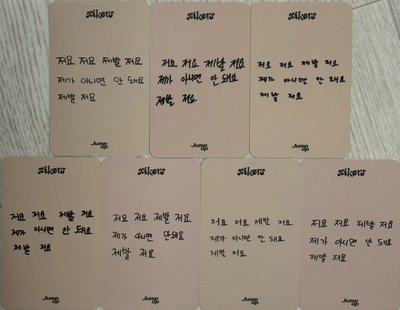 xikers
저요 저요 제발 저요
제가 아니면 안 돼요
제발 저요
Jump up
xikers
저요 저요 제발 저요
제가 아니면 안 돼요
제발 저요
Jump up
xikers
저요 저요 제발 저요
제가 아니면 안 돼요
제발 저요
Jump up
xikers
저요 저요 제발 저요
제가 아니면 안 돼요
제발 저요
Jump up
xikers
저요 저요 제발 저요
제가 아니면 안돼요
제발 저요
Jump up
xikers
저요 저요 제발 저요
제가 아니면 안 돼요
제발 저요
Jump up
xikers
저요 저요 제발 저요
제가 아니면 안 돼요
제발 저요
Jump up